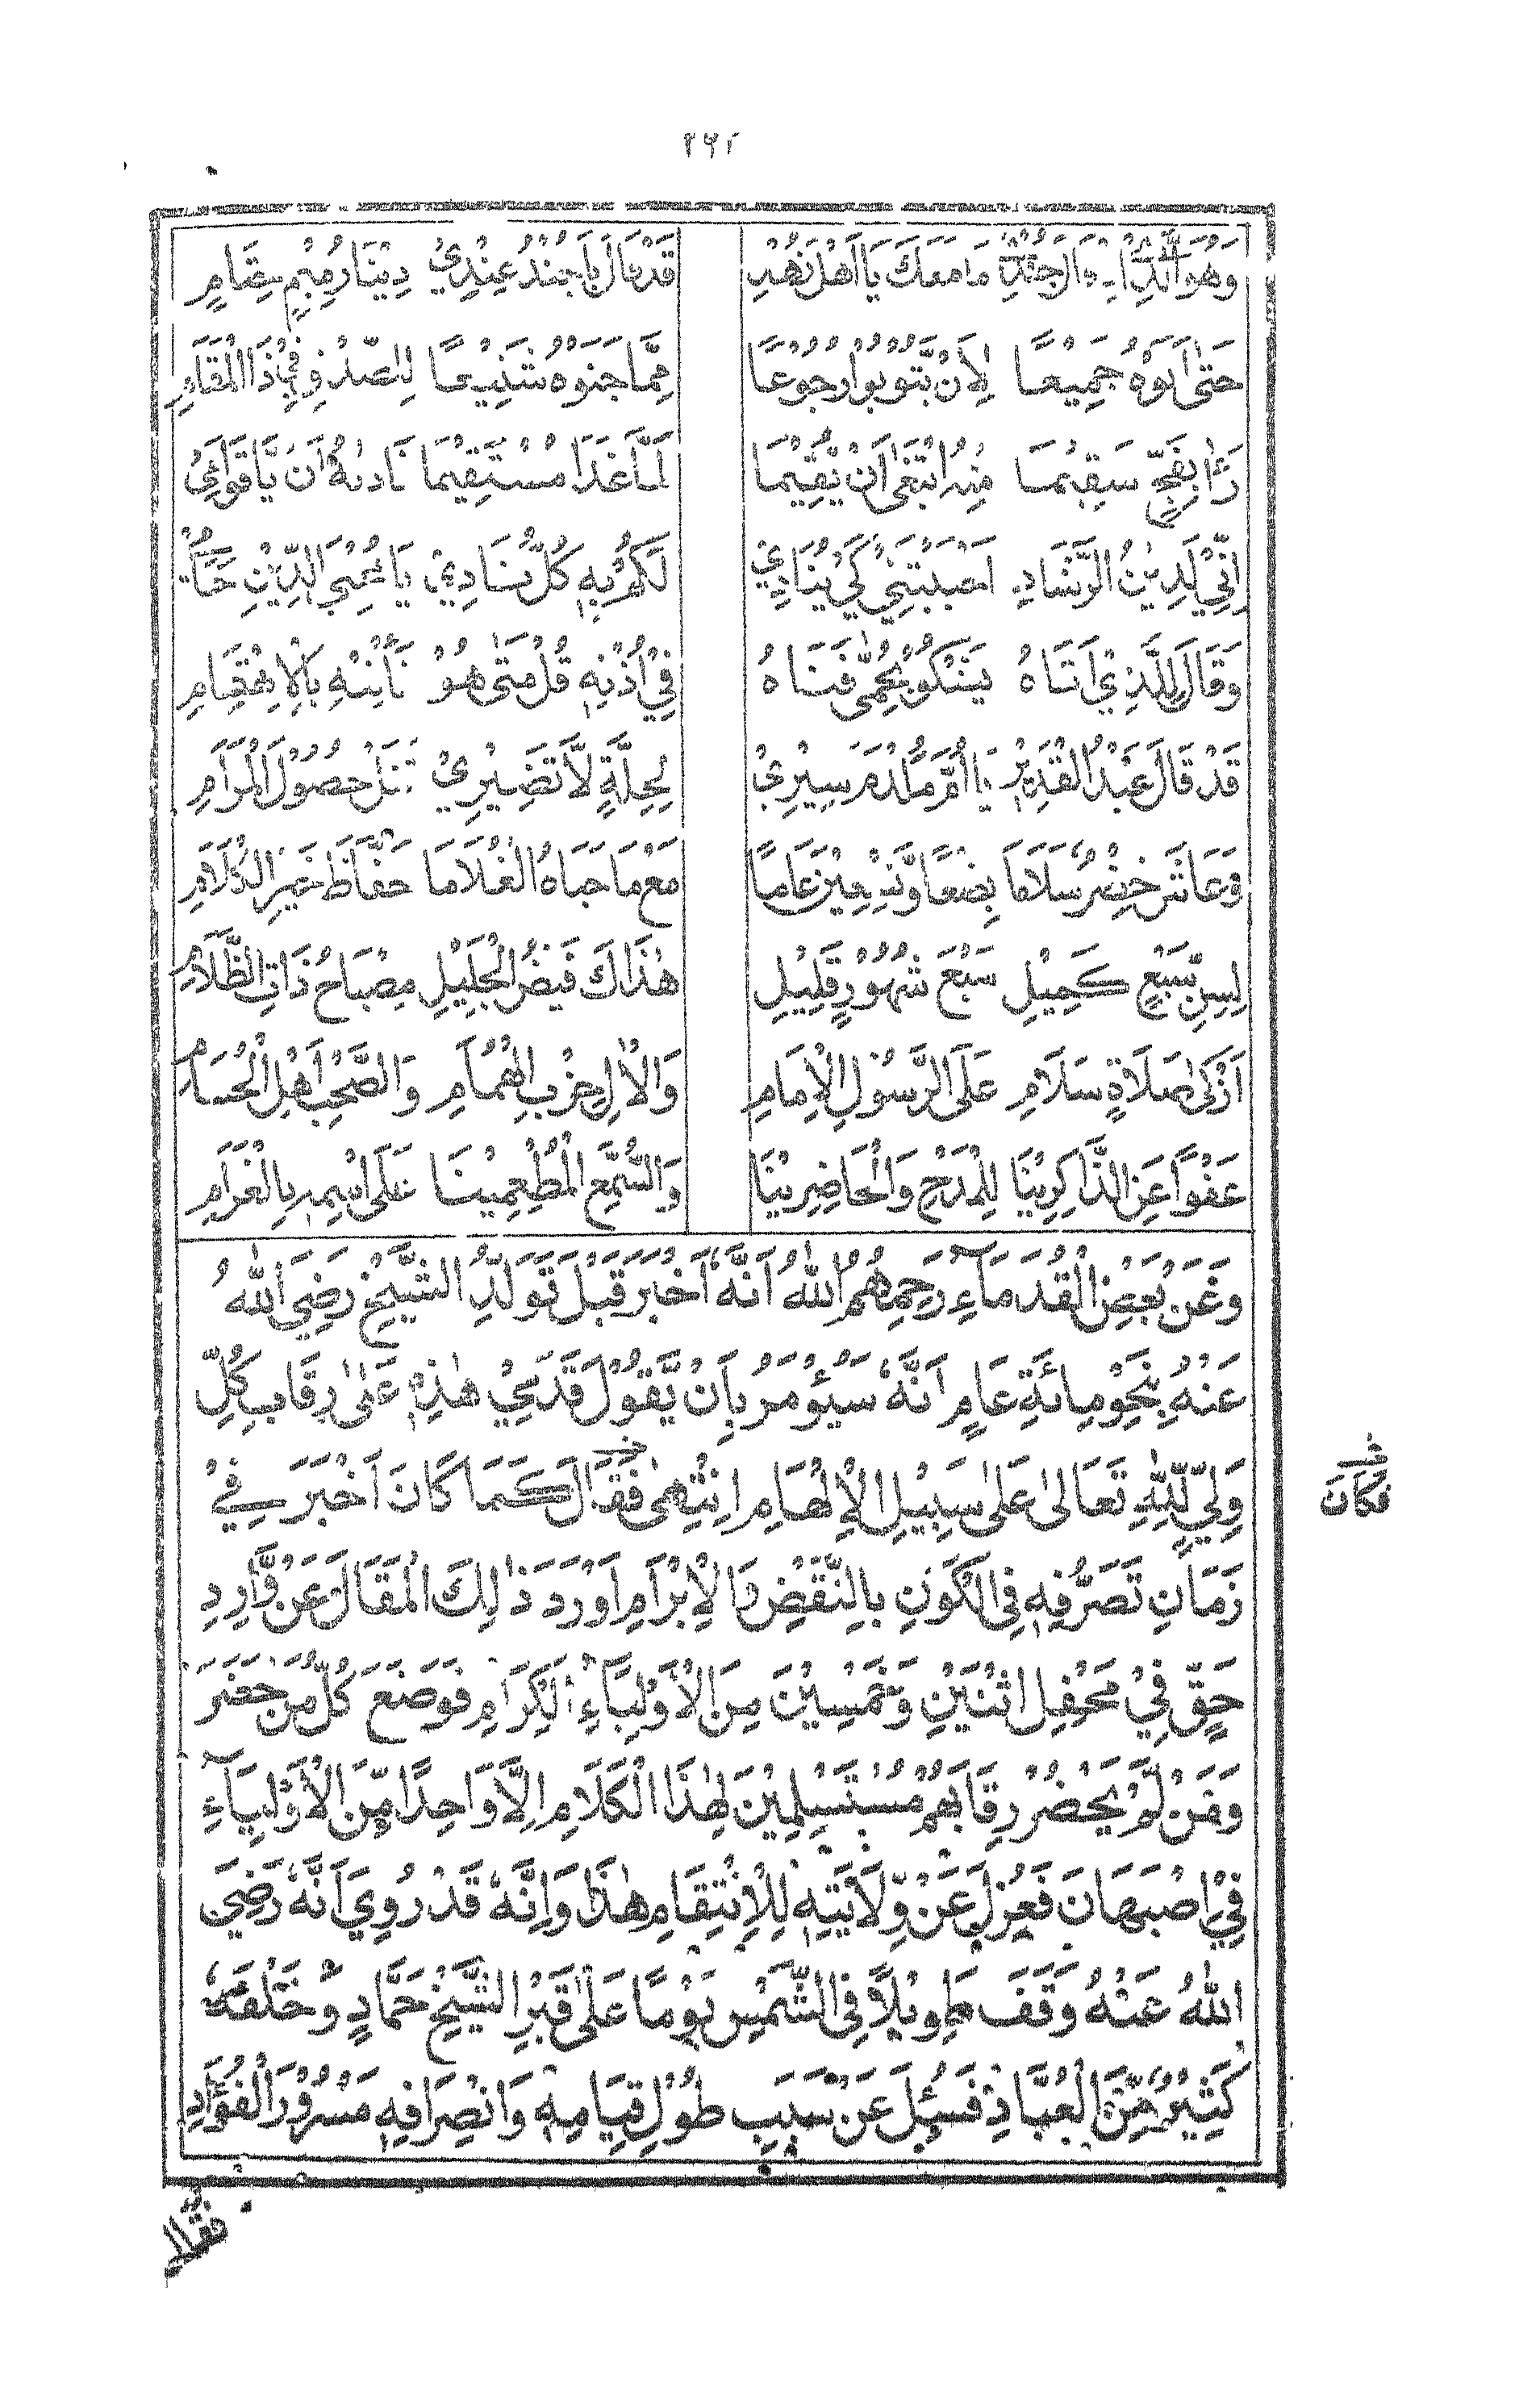 ٢٩١
وَهُوَ الَّذِيْ مَا مَعَكَ يَا اَهْلَ نُهْدِ قَدْ قَالَ يَا جُنْدُ عِنْدِيْ دِيْنَارُ مِيْمٍ
حَتّٰى اَتَوْهُ جَمِيْعًا لِاَنْ يَّتُوْبُوْا رُجُوْعًا مِمَّا جَنَوْهُ شَنِيْعًا لِلصِّدْقِ فِيْ ذَا الْمَقَامِ
سَقِيْمًا مِنْهُ ابْتَغٰى اَنْ يُّقِيْمَا لَمَّا غَدَا مُسْتَقِيْمَا نَادٰىهُ اَنْ يَّا قَوَامِيْ
اِنِّيْ لَدِيْنُ الرَّشَادِ اَصَبْتَنِيْ كَيْ يُنَادِيْ كُلٌّ يُنَادِيْ يَا مُحْيِيَ الدِّيْنِ
وَقَالَ لِلَّذِيْ اَتَاهُ يَشْكُوْ بِحُمّٰى فَتَاهُ فِيْ اُذْنِهٖ قُلْ مَتٰى هُوْ
قَدْ قَالَ عَبْدُ الْقَدِيْرِ يَا اُمَّ مَلْدَمَ سِيْرِيْ لِحِلَّةٍ لَا تَضِيْرِيْ تَنَلْ حُصُوْلَ الْمَرَامِ
وَعَاشَ خِضْرُ سَلَامَا بِضْعًا وَّتِسْعِيْنَ عَامًا مَعْ مَا حَبَاهُ الْغُلَامَا حَفَّاظَ خَيْرِ الْكَلَامِ
لِسِنِّ سَبْعٍ كَمِيْلِ سَبْعَ شُهُوْرٍ قَلِيْلِ هٰذَاكَ فَيْضُ الْجَلِيْلِ مِصْبَاحُ ذَاتِ الظَّلَامِ
اَزْكٰى صَلَاةٍ سَلَامِ عَلَى الرَّسُوْلِ الْاِمَامِ وَالْاٰلِ حِزْبِ الْهُمَامِ وَالصَّحْبِ اَهْلِ الْحُسَامِ
عَفْوًا عَنِ الذَّاكِرِيْنَا لِلْمَدْحِ وَالْحَاضِرِيْنَا وَالسُّمَّعِ الْمُطْعِمِيْنَا عَلَى اسْمِهٖ بِالْغَرَامِ
وَعَنْ بَعْضِ الْقُدَمَآءِ رَحِمَهُمُ اللّٰهُ اَنَّهٗ اَخْبَرَ قَبْلَ تَوَلُّدِ الشَّيْخِ رَضِيَ اللّٰهُ
عَنْهُ بِنَحْوِ مِائَةِ عَامٍ اَنَّهٗ سَيُؤْمَرُ بِاَنْ يَّقُوْلَ قَدَمِيْ هٰذِهٖ عَلٰى رِقَابِ كُلِّ
وَلِيٍّ لِّلّٰهِ تَعَالٰى عَلٰى سَبِيْلِ الْاِلْهَامِ انْتَهٰى فَقَالَ كَمَا كَانَ اَخْبَرَ فِيْ
زَمَانِ تَصَرُّفِهٖ فِى الْكَوْنِ بِالنَّقْضِ وَالْاِبْرَامِ اَوْرَدَ ذٰلِكَ الْمَقَالَ عَنْ وَّارِدِ
حَقٍّ فِيْ مَحْفِلِ اثْنَيْنِ وَخَمْسِيْنَ مِنَ الْاَوْلِيَآءِ الْكِرَامِ فَوَضَعَ كُلُّ مَنْ حَضَرَ
وَمَنْ لَّمْ يَحْضُرْ رِقَابَهُمْ مُسْتَسْلِمِيْنَ لِهٰذَا الْكَلَامِ اِلَّا وَاحِدًا مِّنَ الْاَوْلِيَآءِ
فِيْ اِصْبَهَانَ فَعُزِلَ عَنْ وِّلَايَتِهٖ لِلْاِنْتِقَامِ هٰذَا وَاِنَّهٗ قَدْ رُوِيَ اَنَّهٗ رَضِيَ
اللّٰهُ عَنْهُ وَقَفَ طَوِيْلًا فِى الشَّمْسِ يَوْمًا عَلٰى قَبْرِ الشَّيْخِ حَمَّادٍ وَّخَلْفَهٗ
كَثِيْرٌ مِّنَ الْعُبَّادِ فَسُئِلَ عَنْ سَبَبِ طُوْلِ قِيَامِهٖ وَانْصِرَافِهٖ مَسْرُوْرَ الْفُؤَادِ
فَكَانَ
فَقَالَ